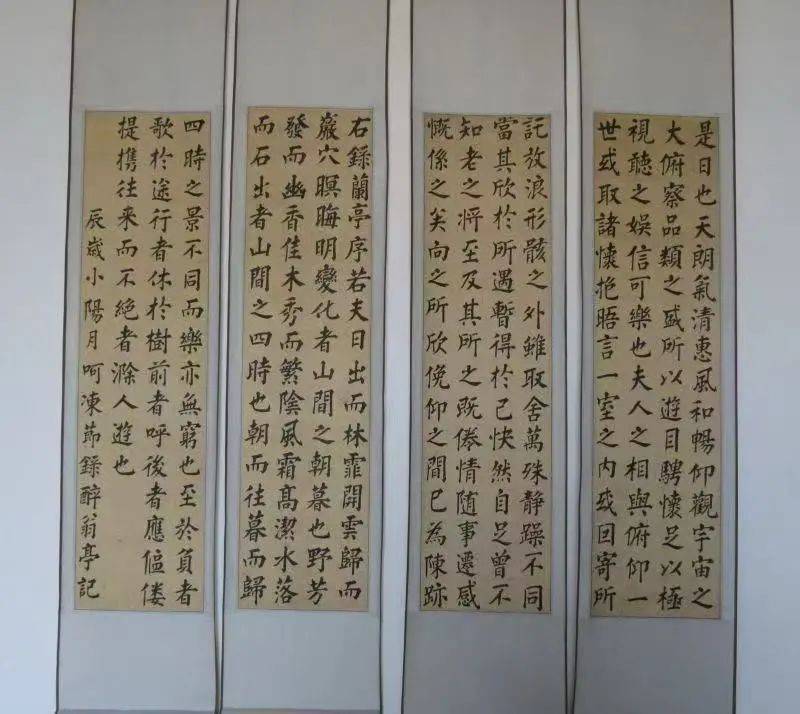 是日也天朗氣清惠風和暢仰觀宇宙之
大俯察品類之盛所以遊目騁懷足以極
視聽之娛信可樂也夫人之相與俯仰一
世或取諸懷抱晤言一室之內或因寄所
託放浪形骸之外雖取舍萬殊静躁不同
當其欣於所遇暫得於己快然自足曾不
知老之將至及其所之既倦情随事遷感
慨係之矣向之所欣俛仰之間已為陳跡
右錄蘭亭序若夫日出而林霏開雲歸而
巖穴暝晦明變化者山間之朝暮也野芳
發而幽香佳木秀而繁陰風霜高潔水落
而石出者山間之四時也朝而往暮而歸
四時之景不同而樂亦無窮也至於負者
歌於途行者休於樹前者呼後者應傴僂
提攜往来而不絕者滁人遊也
辰歲小陽月呵凍節錄醉翁亭記